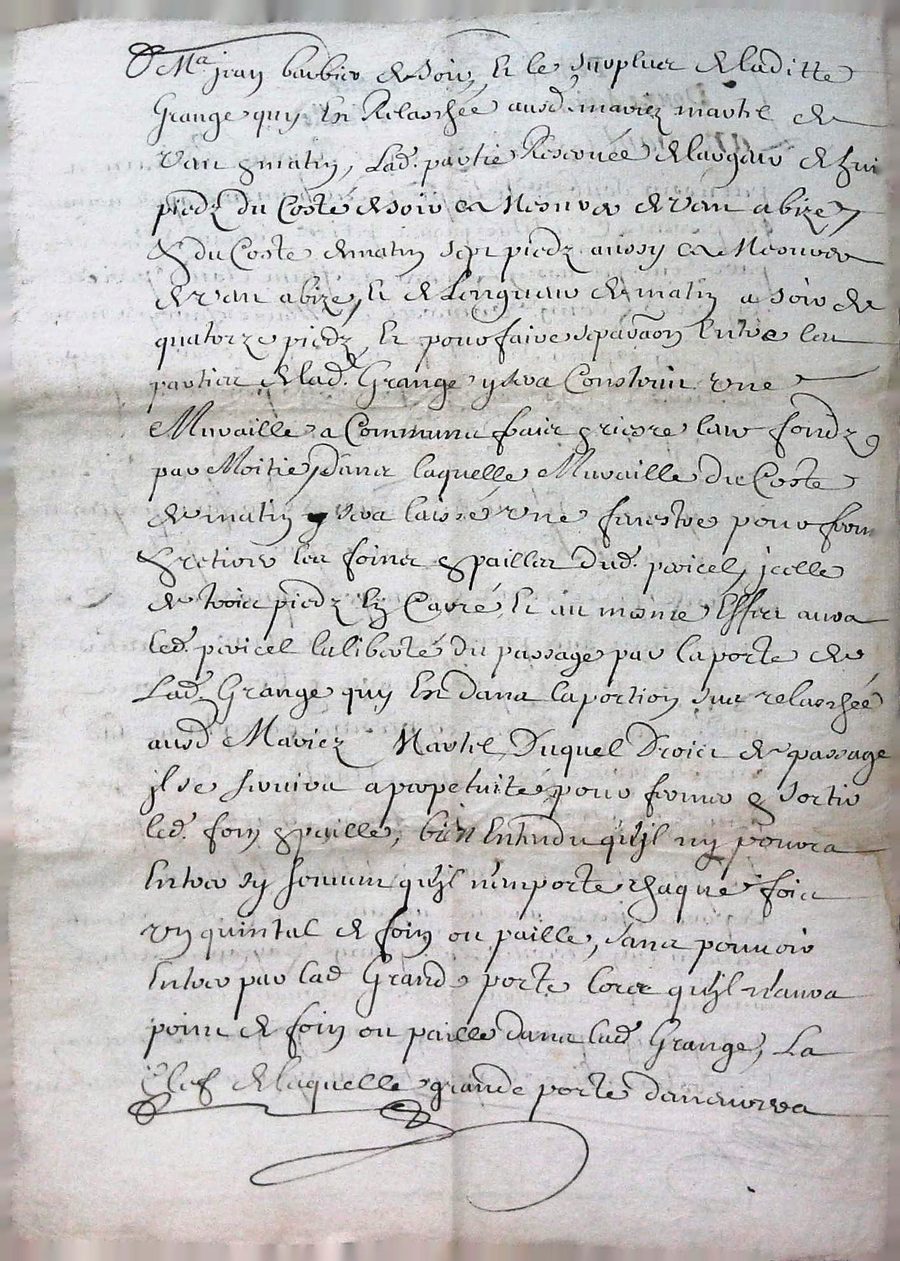 Mᵉ jean barbier de soir, Et le surplus de laditte
Grange quy Est Relaschée ausd. mariez martel de
van & matin, Lad. partie Reservée de largeur de huit
piedz du Costé de soir a Mesurer de van a bize,
& du Costé de matin sept piedz aussy a Mesurer
de van a bize, Et de Longueur de matin a soir de
quatorze piedz, Et pour faire separaon Entre les
parties de lad. Grange y sera Construit une
Muraille a Communs fraicz & riere leur fondz
par Moitié, dans laquelle Muraille du Costé
de matin y sera laissé une fenestre pour
& retirer les foins & pailles dud. jcelle
de trois piedz En Carré, Et au mesme Effect aura
led. la liberté du passage par la porte de
Lad. Grange quy Est dans la portion sus relaschée
ausd. Mariez Martel, Duquel Droict de passage
jl se servira a perpetuité pour fermer & sortir
led. foin & paille, bien Entendu qu'jl ny pourra
Entrer sy qu'jl n'emporte chaque fois
un quintal de foin ou paille, sans pouvoir
Entrer par lad. Grand porte lors qu'jl n'aura
point de foin ou paille dans lad. Grange, La
Clef de laquelle grande porte demeurera